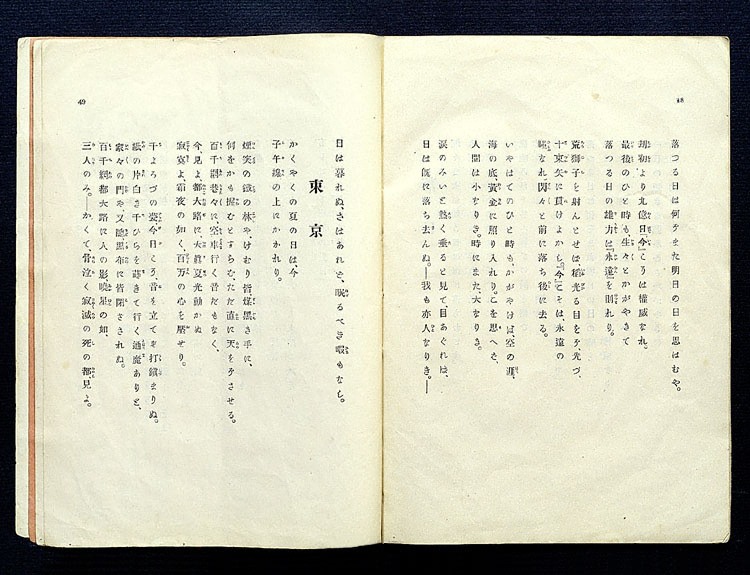 48
落つる日は何ぞまた明日の日を思はむや。
劫初より九億日『今』こそは權威なれ。
最後のひと時も生々とかがやきて
落つる日の雄力は『永遠』を削れり。
荒獅子を射んとせば、稻光る目をぞ、先づ、
十束矢に貫けよかし。『今』こそは、永遠の
瞳なれ、閃々と前に落ち後に去る。
いやはてのひと時も、かがやけば空の涯、
海の底、黃金に照り入れり。こを思へさ、
人間は小なりき。時にまた、大なりき。
淚のみいと熱く垂ると見て、目あぐれば、
日は既に落ち去んぬ。——我も亦人なりき。——
49
日は暮れぬ、さはあれど、眠るべき暇もなし。
東京
かくやくの夏の日は、今
子午線の上にかかれり。
煙突の鐵の林や、けむり皆煤黑き手に、
何をかも握むとすらむ、ただ直に天をぞさせる。
百千網巷々に、空車行く音だもなく、
今、見よ、都大路に、大眞夏光動かぬ
寂寞よ、霜夜の如く、百萬の心を壓せり。
千よろづの甍今日こそ音も立てず打鎭まりぬ。
紙の片白き千ひらを蒔きて行く通魔ありと、
家々の門や、又窓黑布に皆閉ざされぬ。
百千網都大路に人の影曉星の如、
三人のみ。——かくて、骨泣く寂滅の死の都、見よ。